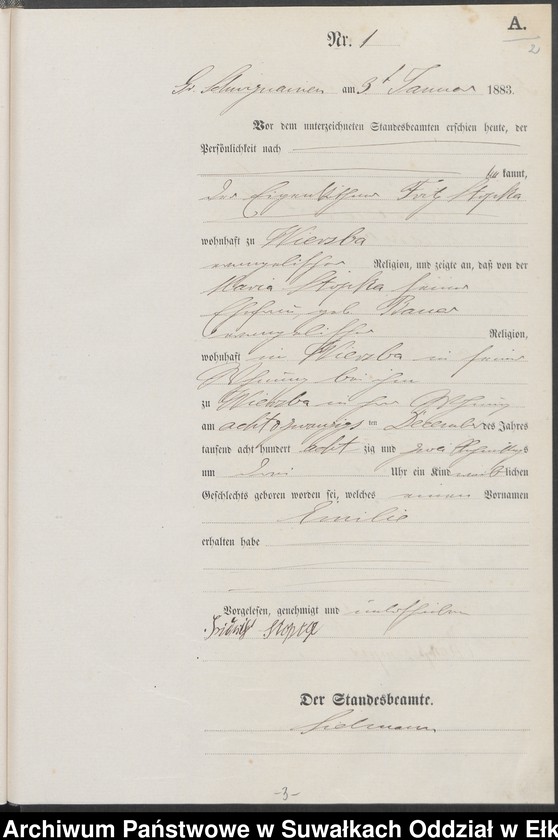 A.
2
Nr. 1
am 3t Januar 1883.
Vor dem unterzeichneten Standesbeamten erschien heute, der
Persönlichkeit nach
kannt,
der Eigenkäthner Fritz Stopka
wohnhaft zu Wiersba
evangelischer Religion, und zeigte an, daß von der
Maria Stopka seiner
Ehefrau, geb. Bauer
evangelischer Religion,
wohnhaft in Wiersba in seiner
Wohnung bei ihm
zu Wiersba in der Wohnung
am achtzwanzigsten December des Jahres
tausend acht hundert acht zig und zwei
um drei Uhr ein Kind weiblichen
Geschlechts geboren worden sei, welches einen Vornamen
Emilie
erhalten habe
Vorgelesen, genehmigt und unterschrieben
Stopka
Der Standesbeamte.
-3-
Archiwum Państwowe w Suwałkach Oddział w Ełk